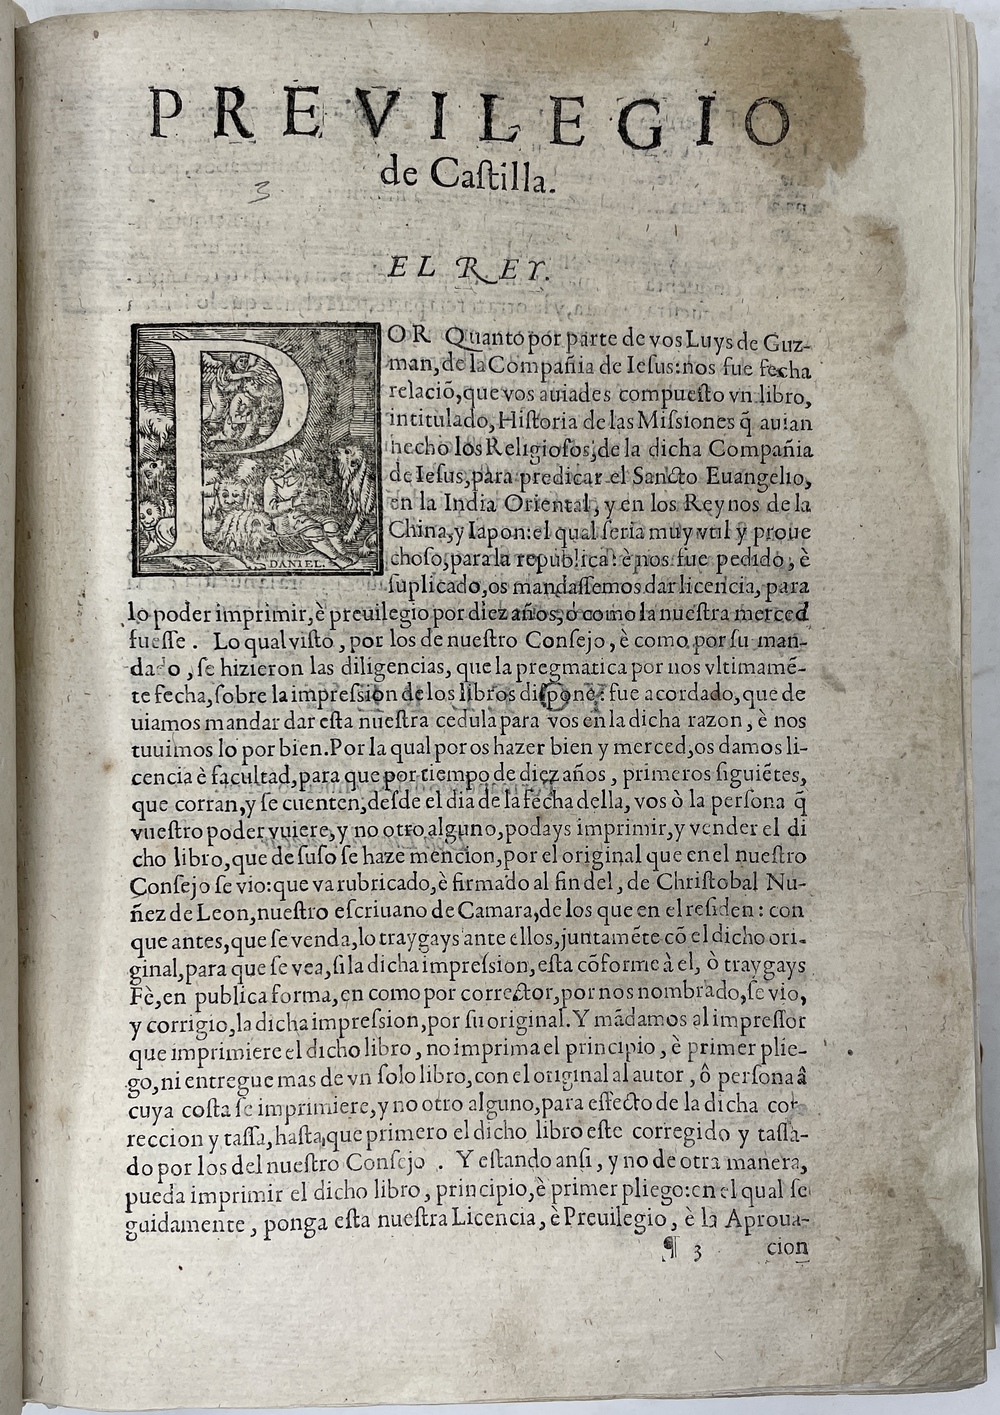 PREVILEGIO
de Caſtilla.
3
EL REY.
POR Quanto por parte de vos Luys de Guz-
man, de la Compañia de Ieſus: nos fue fecha
relaciõ, que vos auiades compueſto vn libro,
intitulado, Hiſtoria de las Miſsiones q̃ auian
hecho los Religioſos, de la dicha Compañia
de Ieſus, para predicar el Sancto Euangelio,
en la India Oriental, y en los Reynos de la
China, y Iapon: el qual ſeria muy vtil y proue
choſo, para la republica: è nos fue pedido, è
ſuplicado, os mandaſſemos dar licencia, para
DANIEL.
lo poder imprimir, è preuilegio por diez años, o como la nueſtra merced
fueſſe. Lo qual viſto, por los de nueſtro Conſejo, è como por ſu man-
dado, ſe hizieron las diligencias, que la pregmatica por nos vltimamẽ-
te fecha, ſobre la impreſsion de los libros diſpone: fue acordado, que de
uiamos mandar dar eſta nueſtra cedula para vos en la dicha razon, è nos
tuuimos lo por bien. Por la qual por os hazer bien y merced, os damos li-
cencia è facultad, para que por tiempo de diez años, primeros ſiguiẽtes,
que corran, y ſe cuenten, deſde el dia de la fecha della, vos ò la perſona q̃
vueſtro poder vuiere, y no otro alguno, podays imprimir, y vender el di
cho libro, que de ſuſo ſe haze mencion, por el original que en el nueſtro
Conſejo ſe vio: que va rubricado, è firmado al fin del, de Chriſtobal Nu-
ñez de Leon, nueſtro eſcriuano de Camara, de los que en el reſiden: con
que antes, que ſe venda, lo traygays ante ellos, juntamẽte cõ el dicho ori-
ginal, para que ſe vea, ſi la dicha impreſsion, eſta cõforme à el, ò traygays
Fè, en publica forma, en como por corrector, por nos nombrado, ſe vio,
y corrigio, la dicha impreſsion, por ſu original. Y mãdamos al impreſſor
que imprimiere el dicho libro, no imprima el principio, è primer plie-
go, ni entregue mas de vn ſolo libro, con el original al autor, ô perſona â
cuya coſta ſe imprimiere, y no otro alguno, para effecto de la dicha cor-
reccion y taſſa, haſta, que primero el dicho libro eſte corregido y taſſa-
do por los del nueſtro Conſejo. Y eſtando anſi, y no de otra manera,
pueda imprimir el dicho libro, principio, è primer pliego: en el qual ſe
guidamente, ponga eſta nueſtra Licencia, è Preuilegio, è la Aproua-
¶ 3 cion